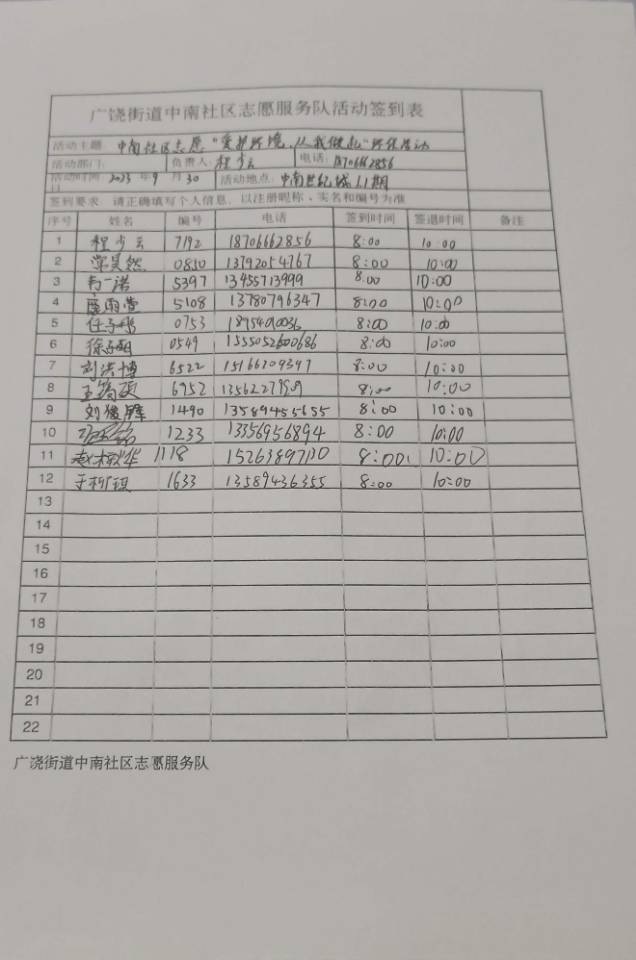 广饶街道中南社区志愿服务队活动签到表
活动主题: 中南社区志愿"爱护环境,从我做起"环保活动
活动部门: 负责人: 程 电话: 18706662856
活动时间 2023 年 9 月 30 日 活动地点: 中南世纪城1.1期
签到要求: 请正确填写个人信息, 以注册昵称、实名和编号为准
序号 姓名 编号 电话 签到时间 签退时间 备注
1 程 7192 18706662856 8:00 10:00
2 0850 13792054767 8:00 10:00
3 一诺 5397 13455713999 8:00 10:00
4 5108 13780796347 8:00 10:00
5 任子 0753 8:00 10:00
6 徐子 0549 8:00 10:00
7 刘洪博 6522 15166209347 8:00 10:00
8 王 6952 8:00 10:00
9 刘俊 1490 13589455655 8:00 10:00
10 1233 13356956894 8:00 10:00
11 赵 华 1118 8:00 10:00
12 于 1633 13589436355 8:00 10:00
13
14
15
16
17
18
19
20
21
22
广饶街道中南社区志愿服务队